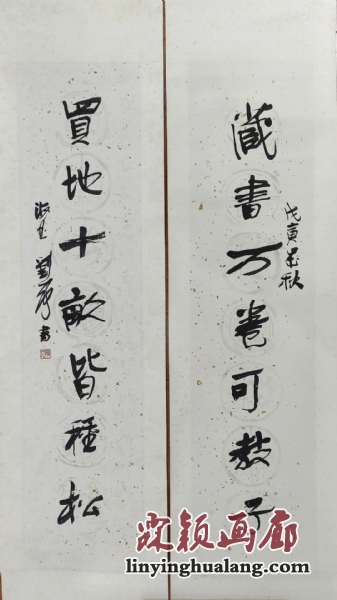 藏書万卷可教子
戊寅之秋
買地十畝皆種松
淑玉
書
霖颖画廊
linyinghualang.com